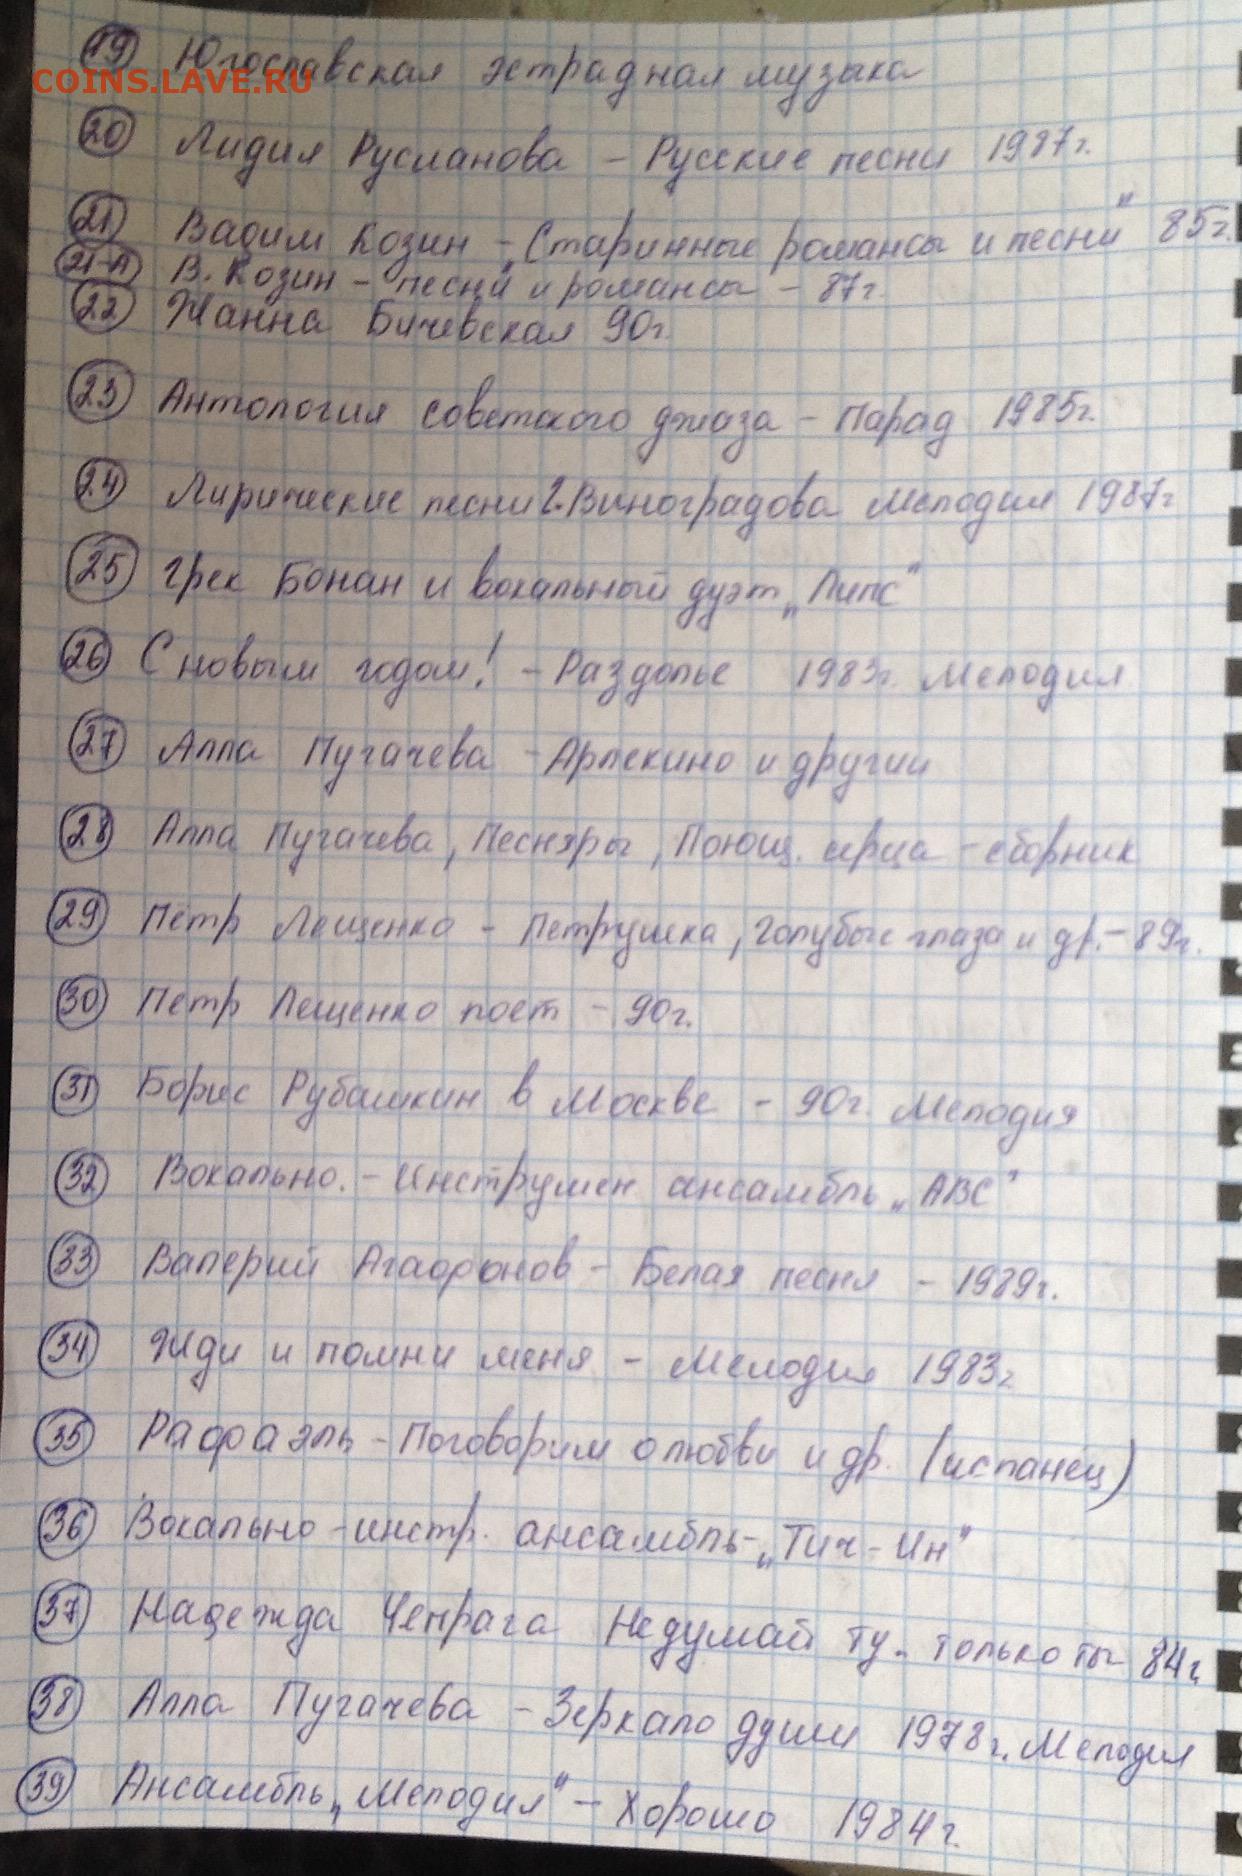 19 Югославская эстрадная музыка
COINS.LAVE.RU
20 Лидия Русланова - Русские песни 1987г.
21 Вадим Козин - „Старинные романсы и песни" 85г.
21-А В. Козин - песни и романсы - 87г.
22 Жанна Бичевская 90г.
23 Антология советского джаза - Парад 1985г.
24 Лирические песни Г. Виноградова Мелодия 1987г
25 Грек Бонан и вокальный дуэт „Липс"
26 С новым годом! - Раздолье 1983г. Мелодия
27 Алла Пугачева - Арлекино и другии
28 Алла Пугачева, Песняры, Поющ. серца - сборник
29 Пётр Лещенко - Петрушка, Голубые глаза и др. - 89г.
30 Петр Лещенко поет - 90г.
31 Борис Рубашкин в Москве - 90г. Мелодия
32 Вокально. - Инструмен ансамбль „АВС"
33 Валерий Агафонов - Белая песня - 1989г.
34 Жди и помни меня - Мелодия 1983г
35 Рафаэль - Поговорим о любви и др. (испанец)
36 Вокально - инстр. ансамбль - „Тич - Ин"
37 Надежда Чепрага Не думай ту. только ты 84г
38 Алла Пугачева - Зеркало души 1978г. Мелодия
39 Ансамбль „Мелодия" - Хорошо 1984г.